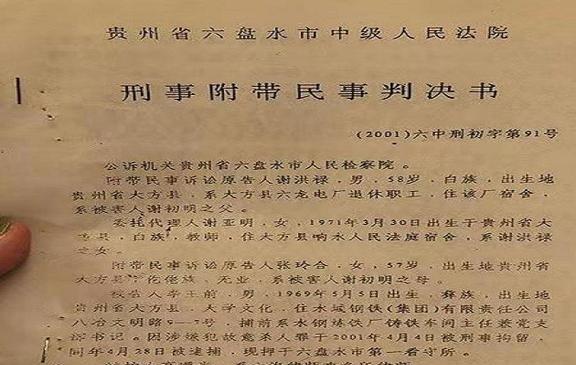 贵州省六盘水市中级人民法院
刑事附带民事判决书
(2001)六中刑初字第91号
公诉机关贵州省六盘水市人民检察院。
附带民事诉讼原告人谢洪禄，男，58岁，白族，出生地
贵州省大方县，系大方县六龙电厂退休职工，住该厂宿舍，
系被害人谢初明之父。
委托代理人谢亚明，女，1971年3月30日出生于贵州省大
方县，白族，教师，住大方县响水人民法庭宿舍，系谢洪禄
之女。
附带民事诉讼原告人张玲合，女，57岁，出生地贵州省
大方县，仡佬族，无业，系被害人谢初明之母。
被告人李玉前，男，1969年5月5日出生，彝族，出生地
贵州省大方县，大学文化，住水城钢铁(集团)有限责任公司
八冶文明路9—7号，捕前系水钢炼铁厂铸铁车间主任兼党支
部书记。因涉嫌犯故意杀人罪于2001年4月4日被刑事拘留，
同年4月28日被逮捕，现押于六盘水市第一看守所。